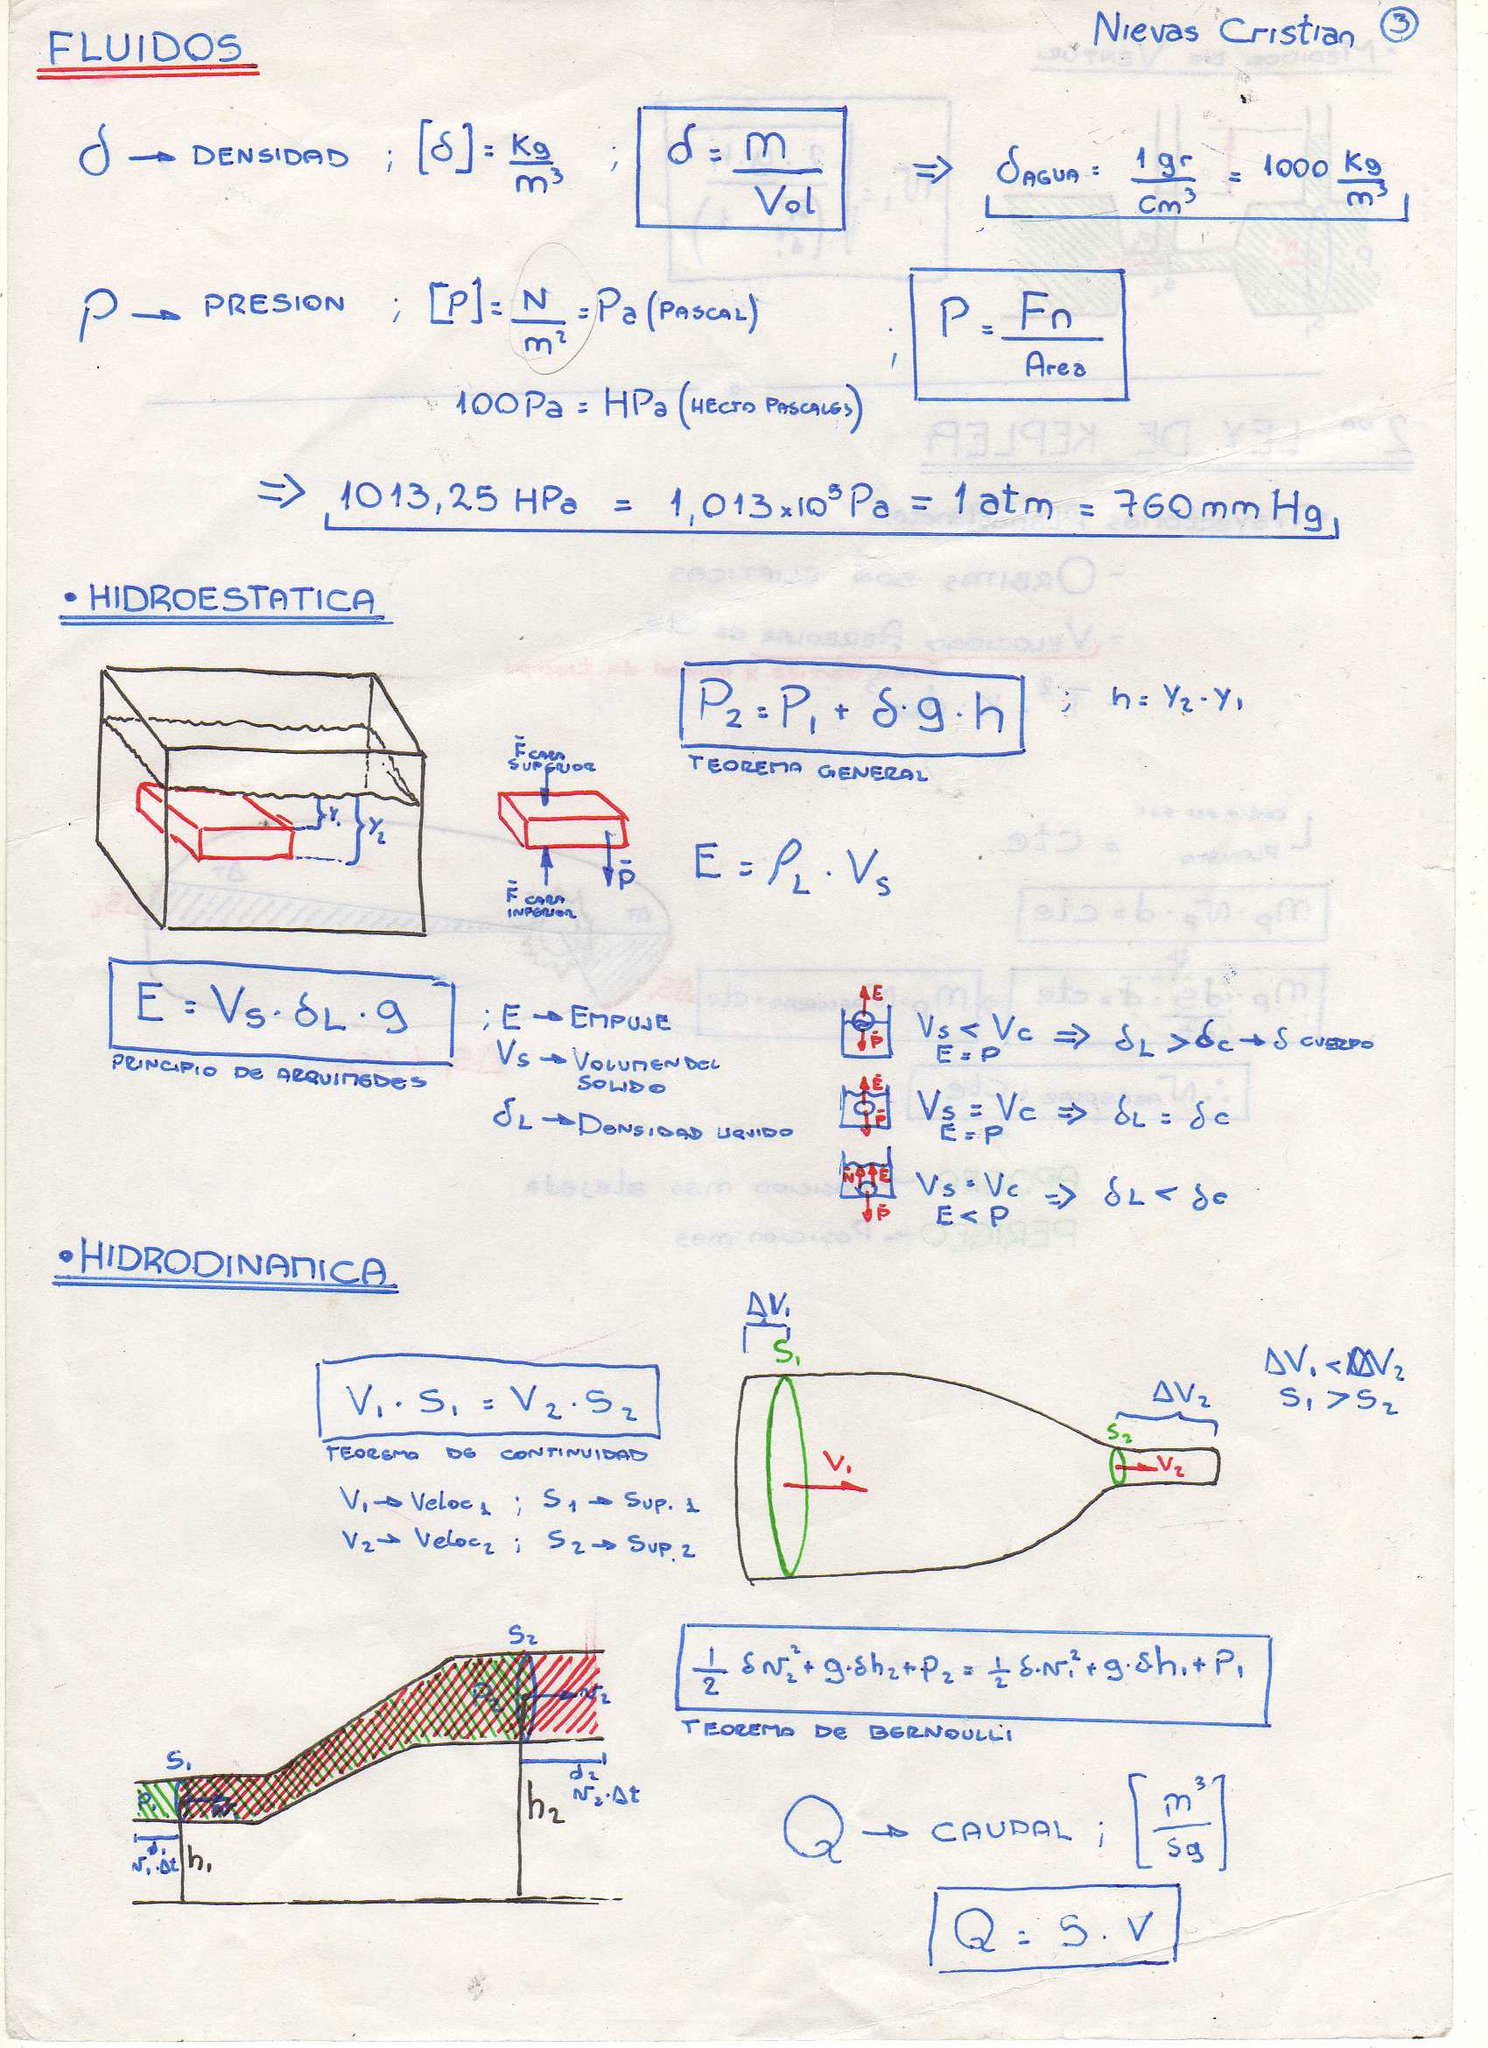 Nievas Cristian 3
FLUIDOS
δ → DENSIDAD ; [δ] = Kg/m³ ; δ = m/Vol ⇒ δAGUA = 1 gr/cm³ = 1000 Kg/m³
P → PRESION ; [P] = N/m² = Pa (PASCAL) ; P = Fn/Area
100 Pa = HPa (HECTO PASCALES)
⇒ 1013,25 HPa = 1,013×10⁵ Pa = 1 atm = 760 mm Hg
• HIDROESTATICA
P₂ = P₁ + δ·g·h ; h = Y₂ - Y₁
TEOREMA GENERAL
F CARA SUPERIOR
Y₁ Y₂
P
F CARA INFERIOR
E = ρL · Vs
E = Vs · δL · g
PRINCIPIO DE ARQUIMEDES
; E → EMPUJE
Vs → VOLUMEN DEL SOLIDO
δL → DENSIDAD LIQUIDO
E P Vs < Vc ⇒ δL > δc → δ CUERPO
E = P
E P Vs = Vc ⇒ δL = δc
E = P
N E P Vs = Vc ⇒ δL < δc
E < P
• HIDRODINAMICA
V₁ · S₁ = V₂ · S₂
TEOREMA DE CONTINUIDAD
V₁ → Veloc₁ ; S₁ → Sup. 1
V₂ → Veloc₂ ; S₂ → Sup. 2
ΔV₁
S₁
V₁
ΔV₂
S₂
V₂
ΔV₁ < ΔV₂
S₁ > S₂
S₂
P₂ v₂
S₁
P₁
d₁
v₁·Δt
h₁
d₂
v₂·Δt
h₂
1/2 δv₂² + g·δh₂ + P₂ = 1/2 δ·v₁² + g·δh₁ + P₁
TEOREMA DE BERNOULLI
Q → CAUDAL ; [m³/sg]
Q = S . V